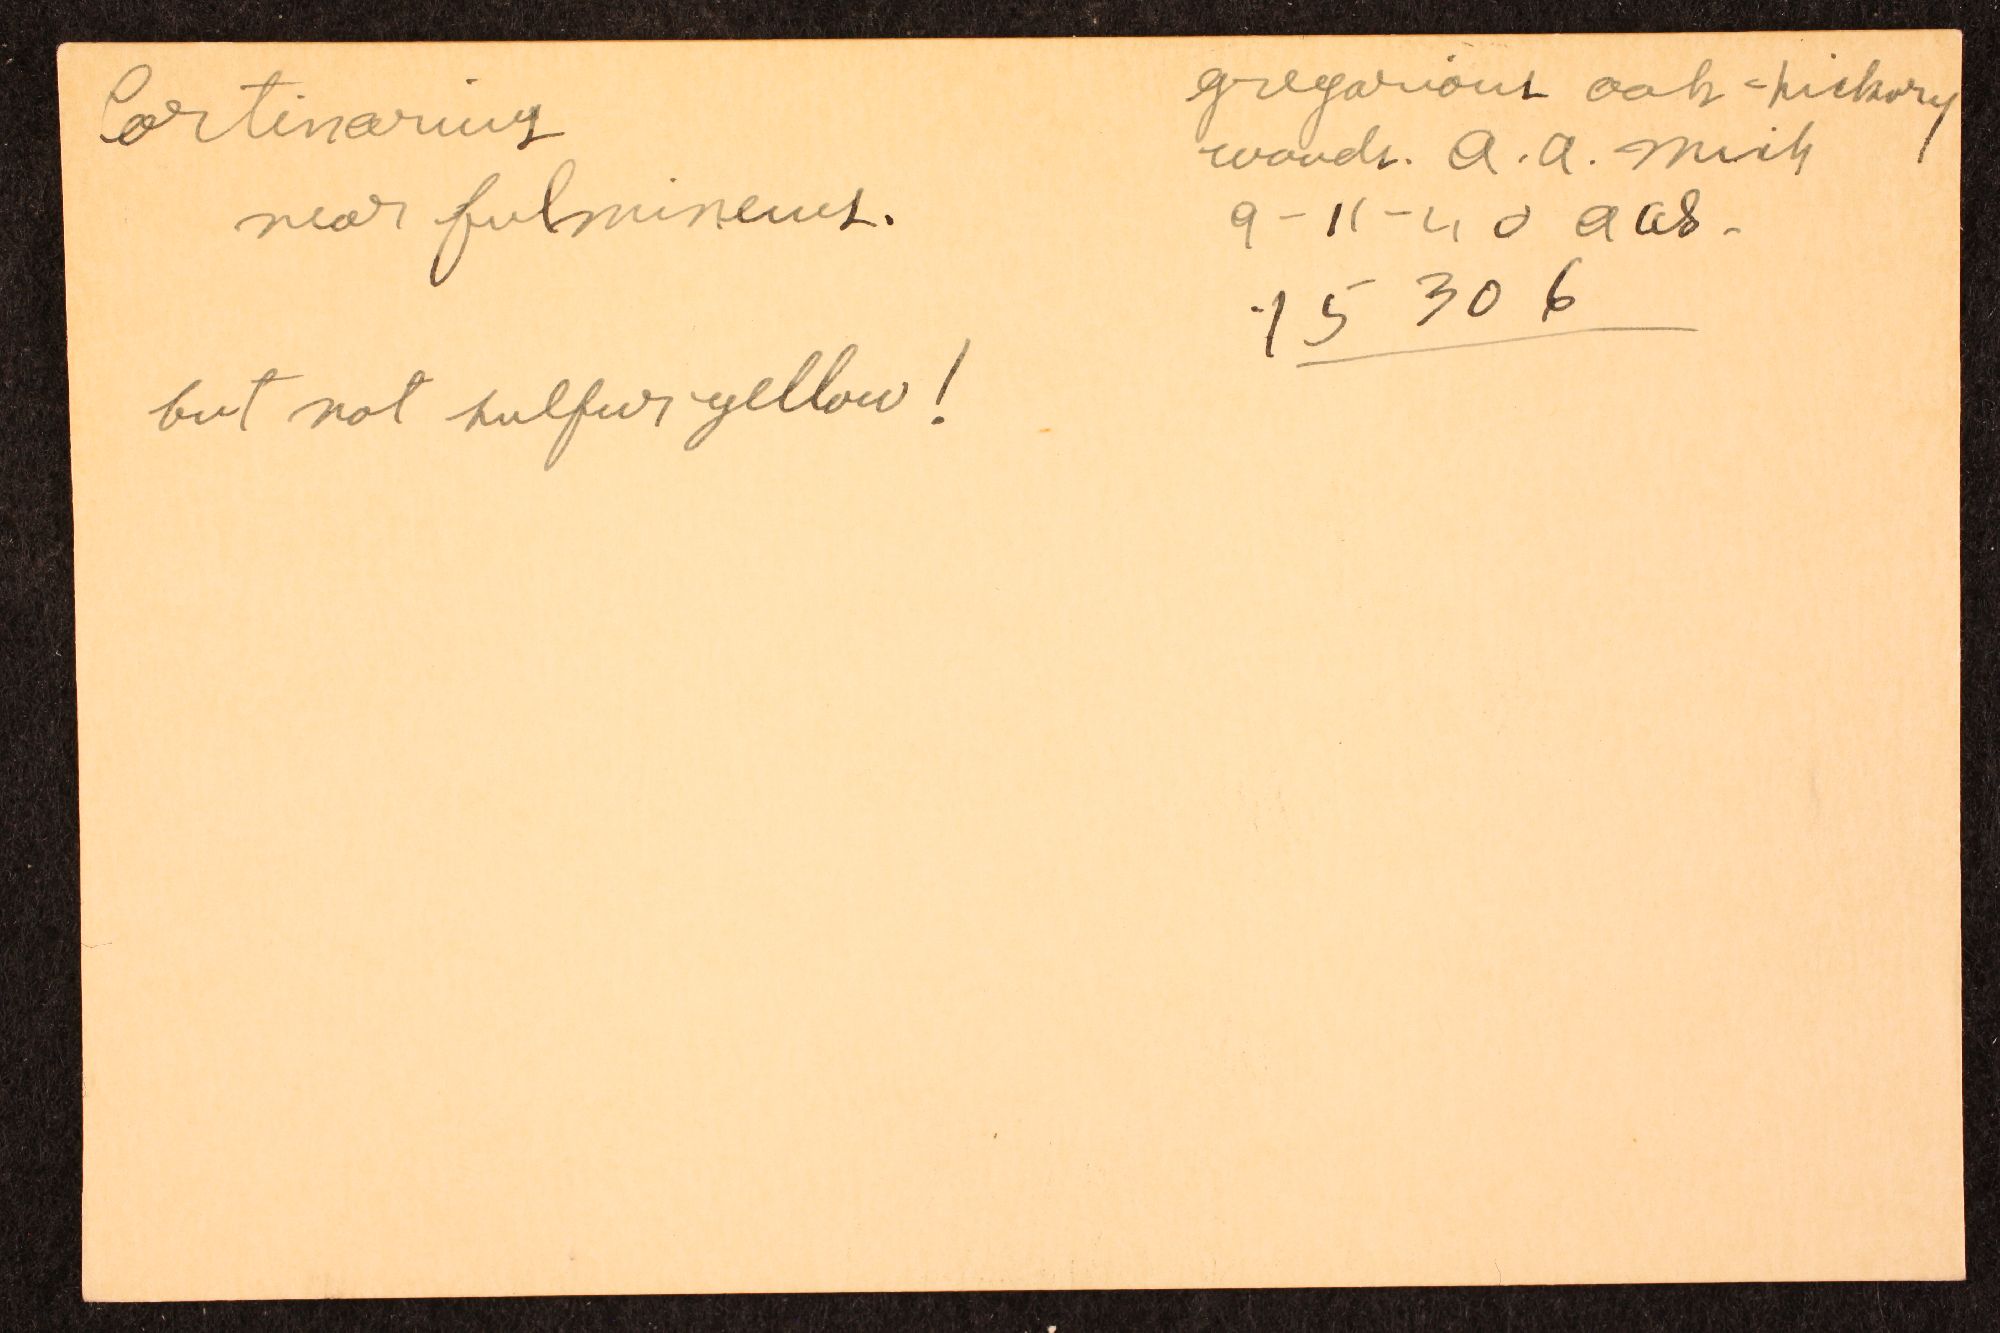 Cortinarius
near fulmineus.
but not sulfur-yellow!
gregarious oak-hickory
woods. A.A. Mich
9-11-40 AHS.
15306